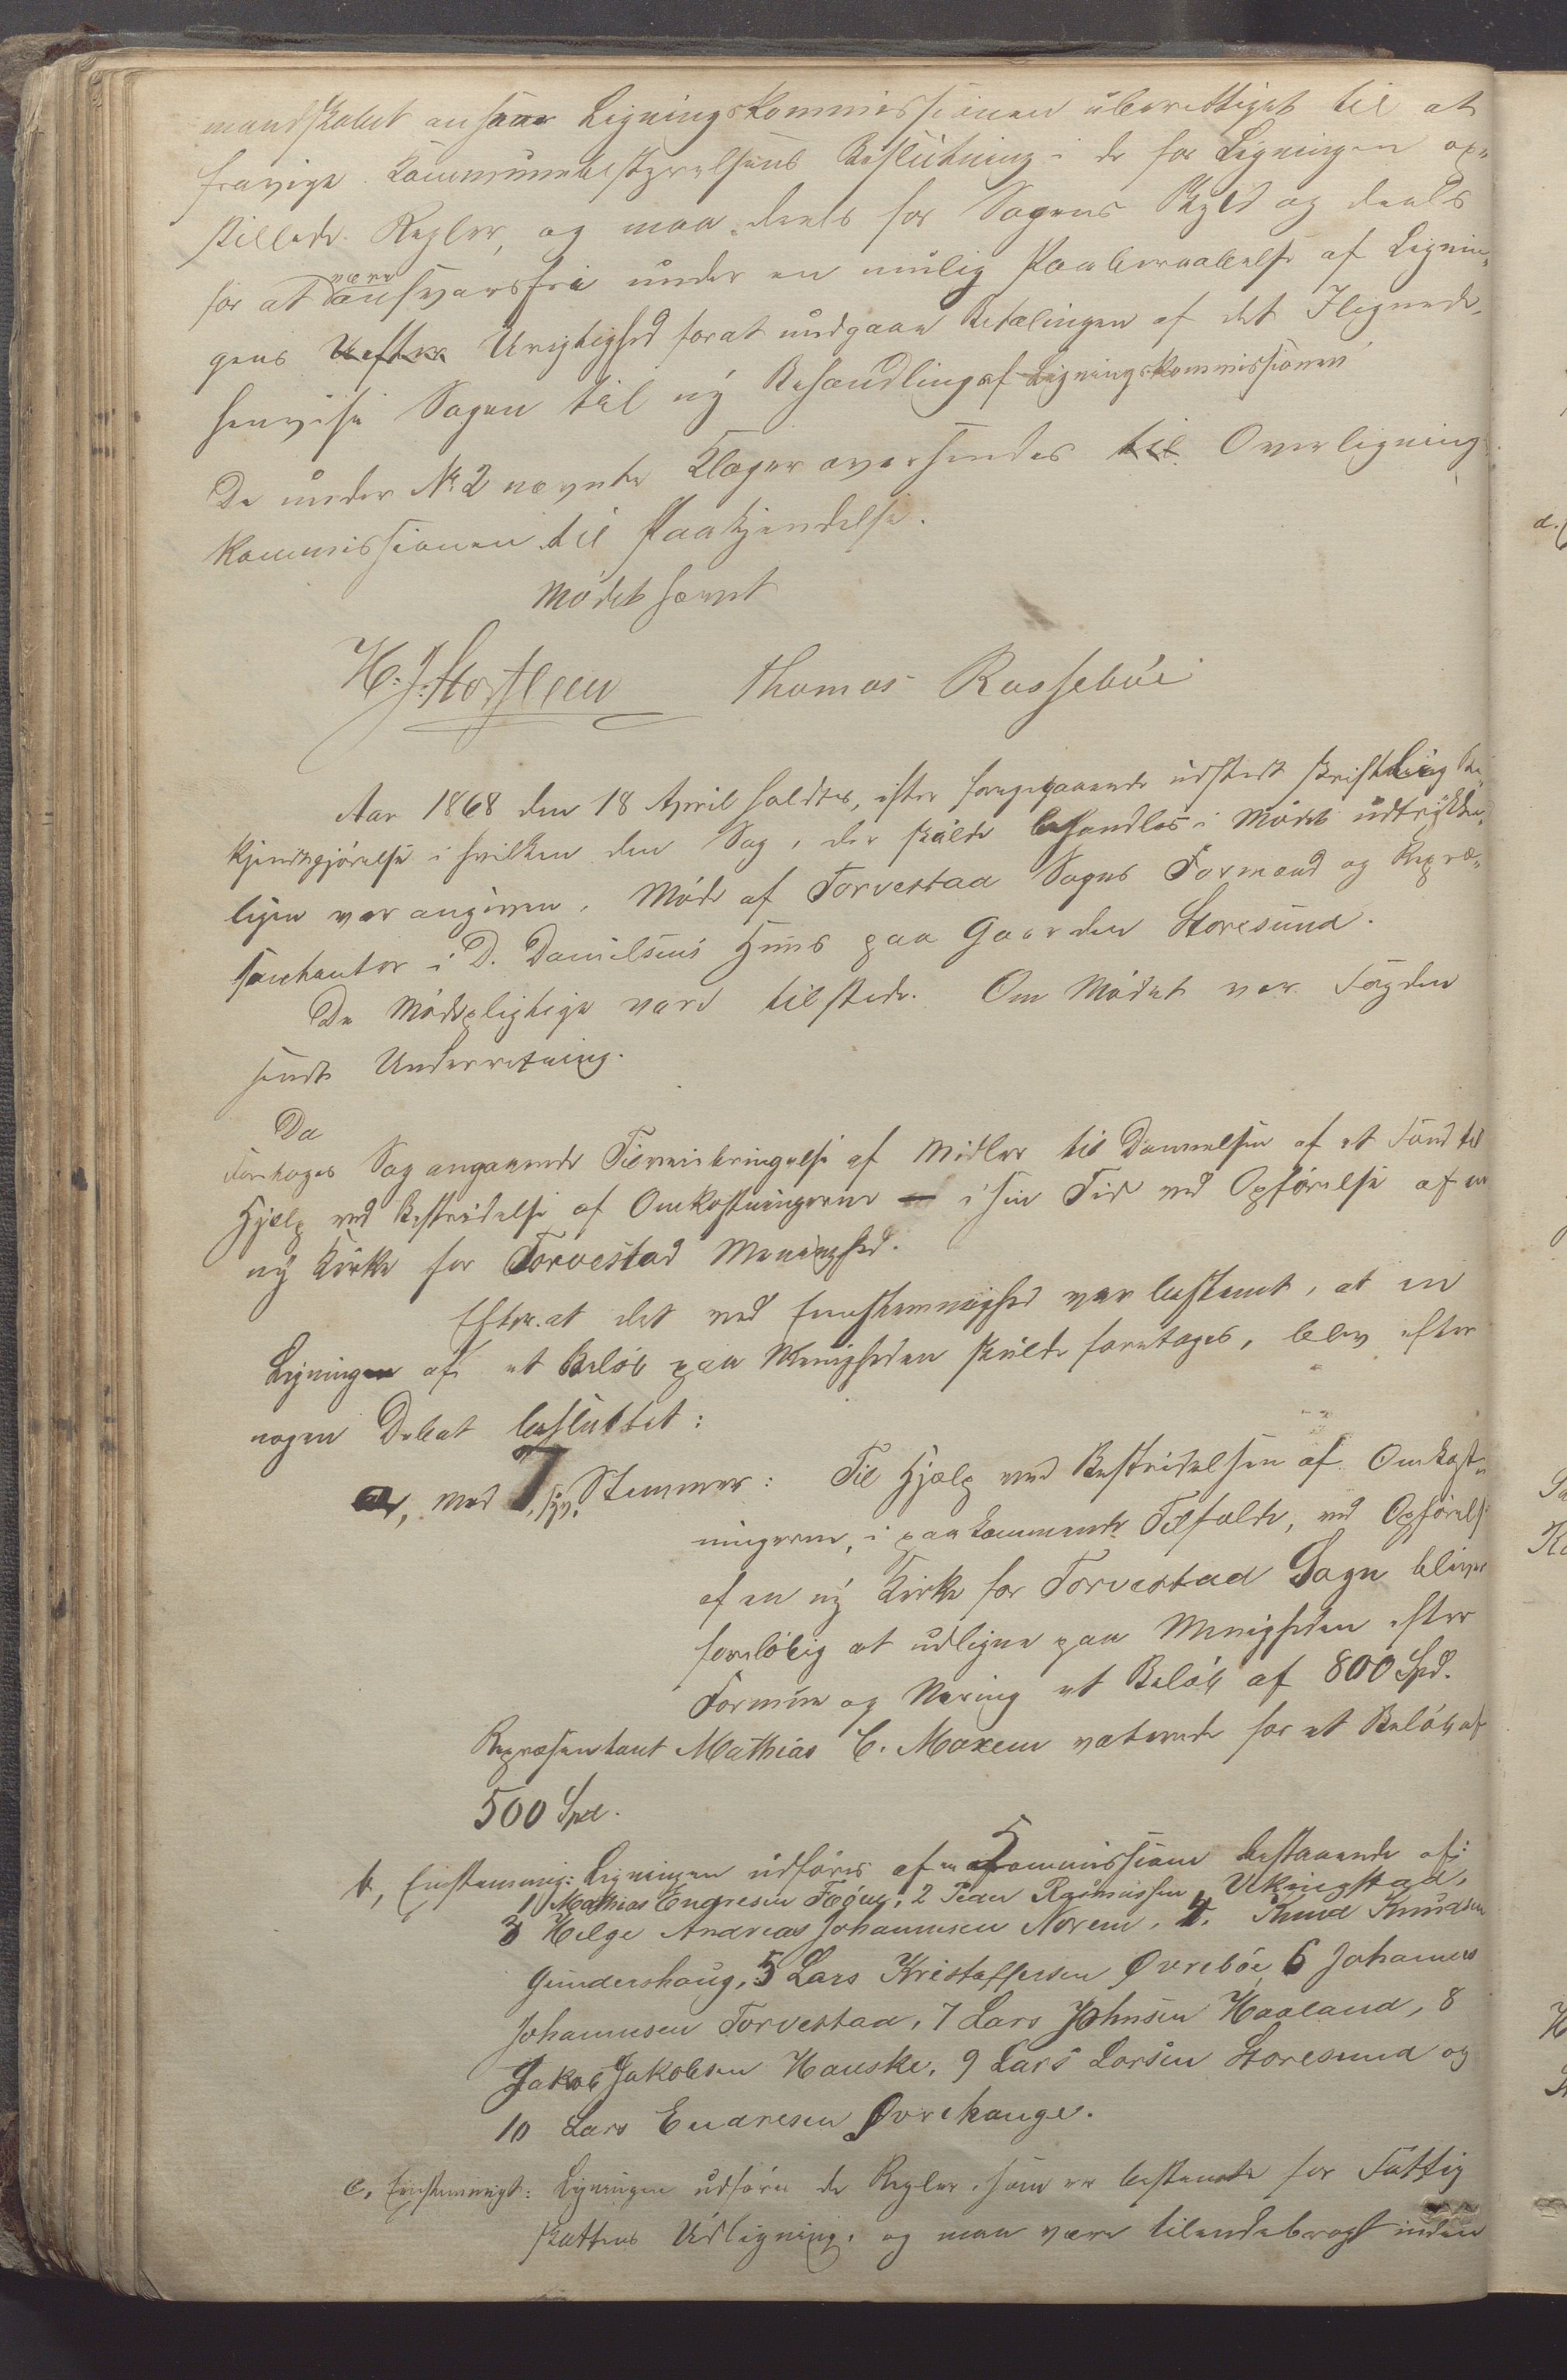 mandskabet ansaae Ligningskommissionen uberettiget til at
fravige Kommunebestyrelsens Beslutning i de for Ligningen op-
stillede Regler, og maa deels for Sagens Skyld og deels
for at være ansvarsfri under en mulig Paaberaabelse af Lignin-
gens Urigtighed forat undgaae Betalingen af det Ilignede,
henvise Sagen til ny Behandling af Ligningskommissionen
De under No 2 nævnte Klager oversendes til Overligning
kommissionen til Paakjendelse.
Mødet hævet
H. J. Thomas Rossebøe
Aar 1868 den 18 April holdtes, efter foregaaende udstedt skriftlig Be-
kjendtgjørelse i hvilken den Sag, der skulde behandles i Mødet udtrykke-
ligen var angiven, Møde af Torvestad Sogns Formænd og Repræ-
sentanter i D. Danielsens Huus paa Gaarden Storesund.
De Mødepligtige vare tilstede. Om Mødet var Fogden
sendt Underretning.
Da
foretoges Sag angaaende Tilveiebringelse af Midler til Dannelsen af et Fond til
Hjælp ved Bestridelse af Omkostningerne i sin Tid ved Opførelse af en
ny Kirke for Torvestad Menighed.
Efter at det ved Eenstemmighed var bestemt, at en
Ligning af et Beløb paa Menigheden skulde foretages, blev efter
nogen Debat besluttet:
a, med 7, syv, Stemmer: Til Hjælp ved Bestridelsen af Omkost-
ningerne, i paakommende Tilfælde, ved Opførelse
af en ny Kirke for Torvestad Sogn bliver
foreløbig at udligne paa Menigheden efter
Formue og Næring et Beløb af 800 Spd.
Repræsentant Mathias C. Moxem voterede for et Beløb af
500 Spd.
b, Enstemmig: Ligningen udføres af en Kommission bestaaende af:
1 Mathias Endresen Fæøen, 2 Peder Rasmussen Vikingstad,
3 Helge Andreas Johannesen Norem, 4. Knud Knudsen
Gundershaug, 5 Lars Kristoffersen Øvrebøe, 6 Johannes
Johannesen Torvestad, 7 Lars Johnsen Haaland, 8
Jakob Jakobsen Hauske, 9 Lars Larsen Storesund og
10 Lars Endresen Øvrehauge.
c, Enstemmigt: Ligningen udføres de Regler, som er bestemte for Fattig
skattens Udligning, og maa være tilendebragt inden